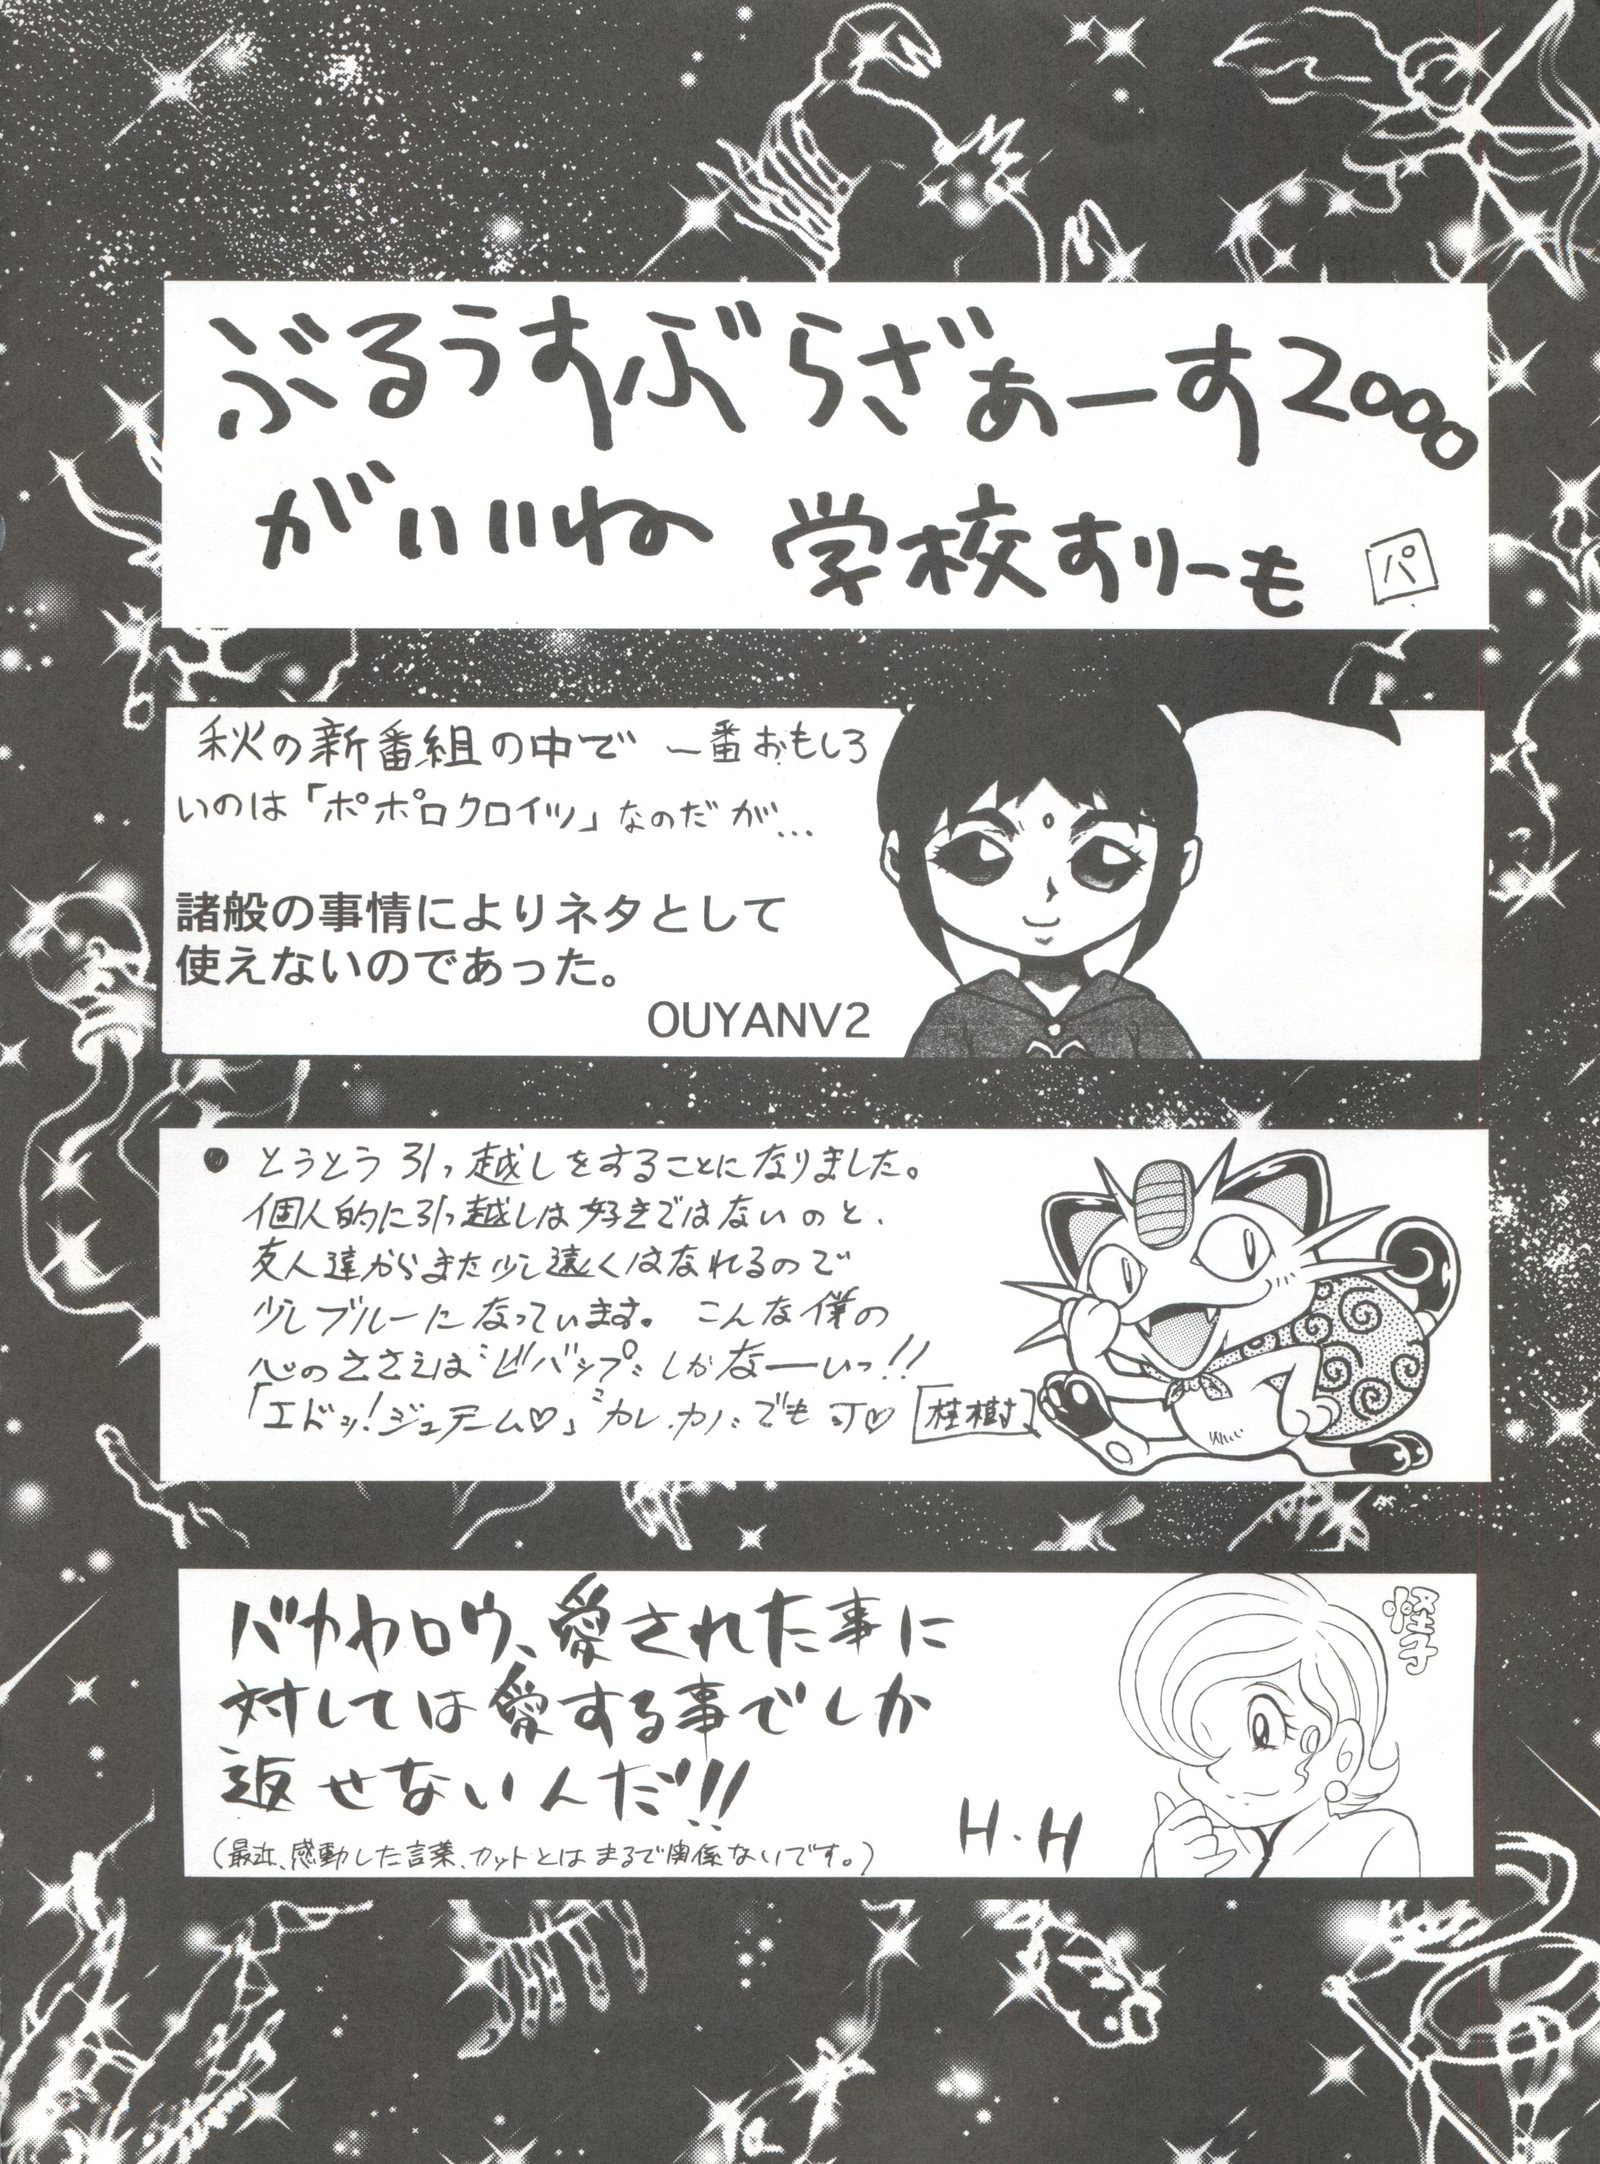 ぶるうすぶらざぁーす2000
がいいね 学校すりーも パ
秋の新番組の中で 一番おもしろ
いのは「ポポロクロイツ」なのだが...
諸般の事情によりネタとして
使えないのであった。
OUYANV2
● とうとう引っ越しをすることになりました。
個人的に引っ越しは好きではないのと、
友人達からまた少し遠くはなれるので
少しブルーになっています。こんな僕の
心のささえは〝ビバップ〟しかなーいっ!!
「エドッ!ジュテーム♡」〝カレ.カノ〟でも可♡ [桂樹]
バカヤロウ、愛された事に
対しては愛する事でしか
返せないんだ!!
(最近、感動した言葉、カットとはまるで関係ないです。)
H.H
怪子